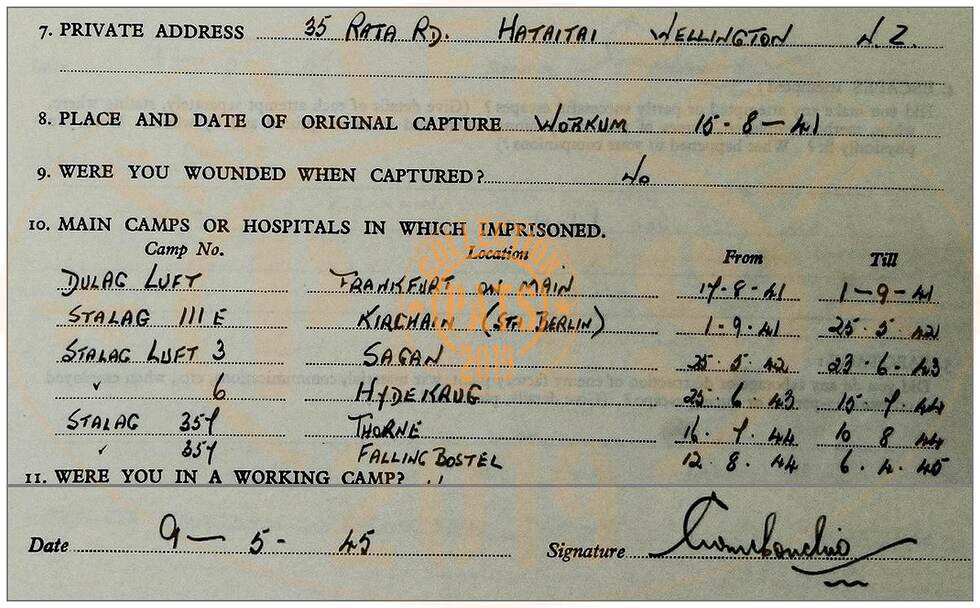 7. PRIVATE ADDRESS 35 RATA RD. HATAITAI WELLINGTON N.Z.
8. PLACE AND DATE OF ORIGINAL CAPTURE WORKUM 15-8-41
9. WERE YOU WOUNDED WHEN CAPTURED? No
10. MAIN CAMPS OR HOSPITALS IN WHICH IMPRISONED.
Camp No. Location From Till
DULAG LUFT FRANKFURT ON MAIN 17-8-41 1-9-41
STALAG III E KIRCHAIN (STH BERLIN) 1.9.41 25.5.42
STALAG LUFT 3 SAGAN 25.5.42 23.6.43
" 6 HYDEKRUG 25.6.43 15.7.44
STALAG 357 THORNE 16.7.44 10 8 44
" 357 FALLINGBOSTEL 12.8.44 6.4.45
11. WERE YOU IN A WORKING CAMP?
Date 9-5-45 Signature
COLLECTION
PATS
2019